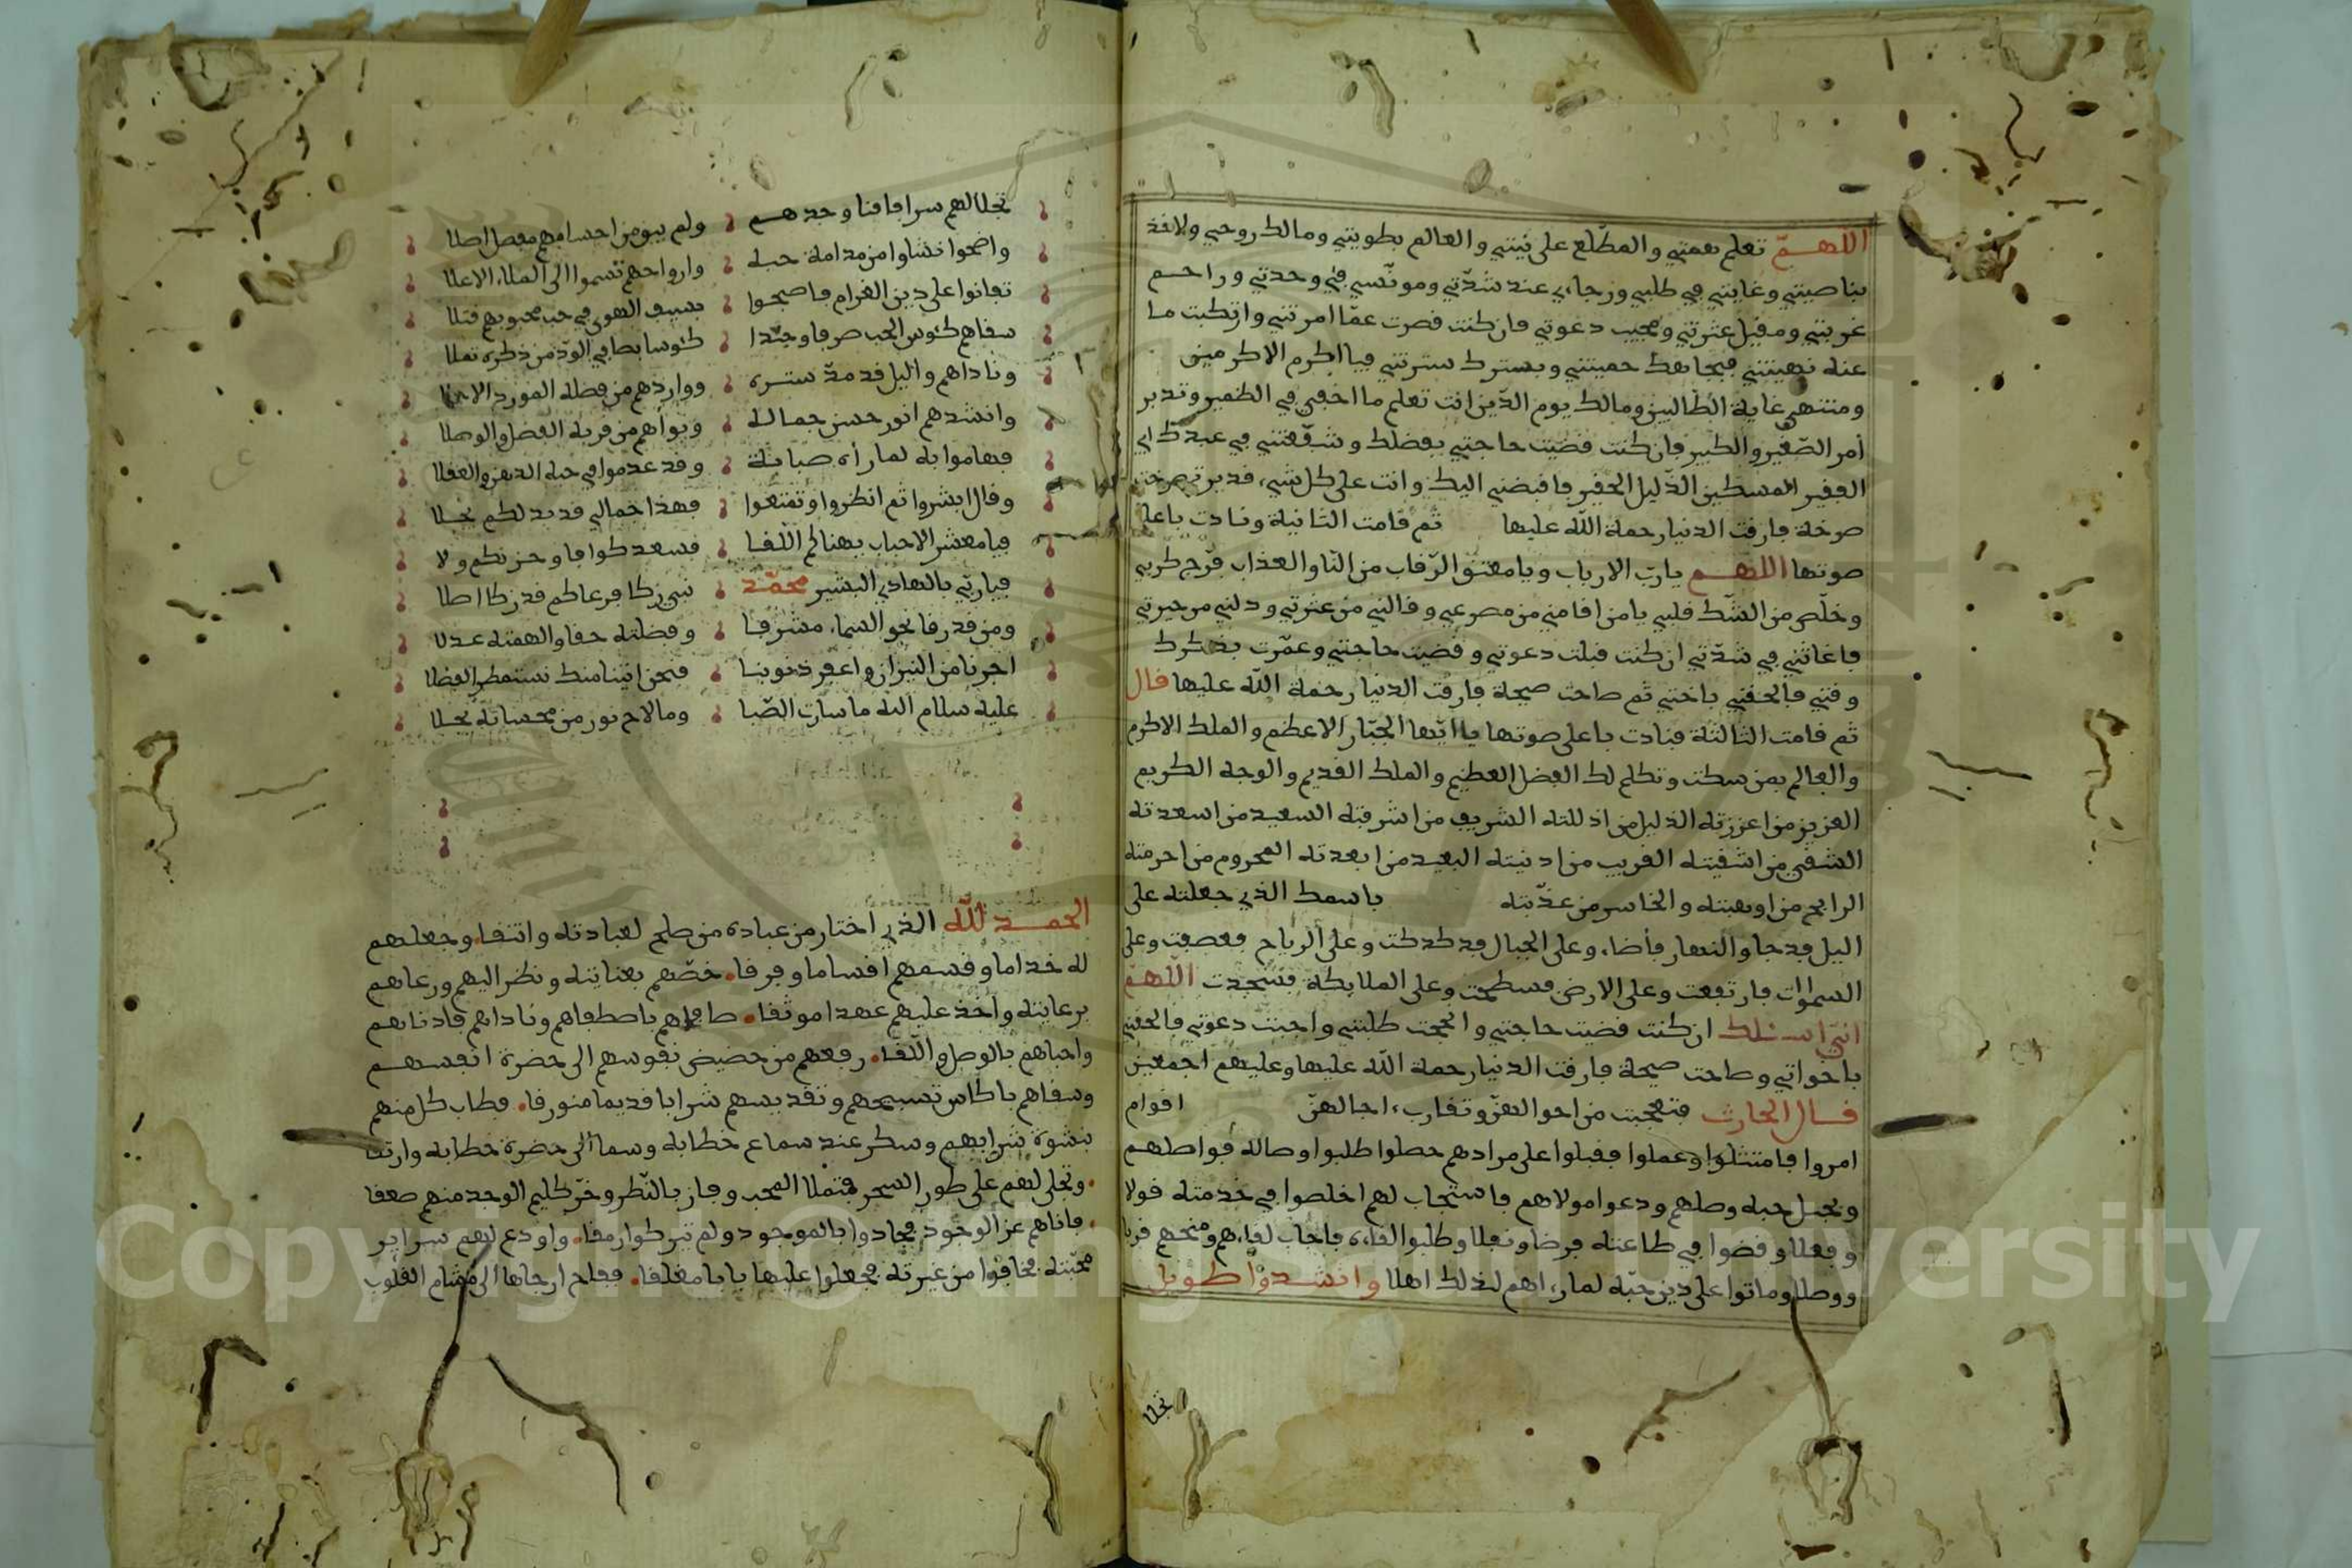 اللهم تعلم همتي والمطّلع على نيتي والعالم بطويتي ومالك روحي ولاخذ
بناصيتي وغايتي في طلبي ورجاءي عند شدّتي ومونسي في وحدتي وراحم
غربتي ومقيل عثرتي ومجيب دعوتي فان كنت قصرت عمّا امرتني وارتكبت ما
عنه نهيتني فبحلمك حميتني وبسترك سترتني فيا اكرم الاكرمين
ومنتهى غاية الطالبين ومالك يوم الدّين انت تعلم ما اخفي في الضمير وتدبر
أمر الصّغير والكبير فان كنت قضيت حاجتي بفضلك وشفّعتني في عبدك اي
الفقير المسكين الذّليل الحقير فاقبضني اليك وانت على كل شيء قدير ثم صرخت
صرخة فارقت الدنيا رحمة الله عليها ثم قامت الثانية ونادت باعلى
صوتها اللهم يا ربّ الارباب ويا معتق الرّقاب من النار والعذاب فرّج كربي
وخلّص من الشّك قلبي يا من اقامني من مصرعي وقالني من عثرتي ودلني من حيرتي
فاغاثني في شدّتي ان كنت قبلت دعوتي وقضيت حاجتي وعمّرت بذكرك
وقتي فالحقني باختي ثم صاحت صيحة فارقت الدنيا رحمة الله عليها قال
ثم قامت الثالثة فنادت باعلى صوتها يا ايّها الجبّار الاعظم والملك الاكرم
والعالم بمن سكت وتكلم لك الفضل العظيم والملك القديم والوجه الكريم
العزيز من اعززته الذليل من اذللته الشريف من اشرفته السعيد من اسعدته
الشقي من اشقيته القريب من ادنيته البعيد من ابعدته المحروم من احرمته
الرابح من اوهبته والخاسر من عذّبته باسمك الذي جعلته على
اليل فدجا والنهار فأضاء وعلى الجبال فدكدكت وعلى الرياح فعصفت وعلى
السموات فارتفعت وعلى الارض فسطحت وعلى الملايكة فسجدت اللهم
انّي اسئلك ان كنت قضيت حاجتي وانجحت طلبتي واجبت دعوتي فالحقني
باخواتي وصاحت صيحة فارقت الدنيا رحمة الله عليها وعليهم اجمعين
قال الحارث فتعجبت من احوالهنّ وتقارب اجالهنّ اقوام
امروا فامتثلوا وعملوا فقبلوا على مرادهم حصلوا طلبوا وصاله فواصلهم
وبحبل حبه وصلهم ودعوا مولاهم فاستجاب لهم اخلصوا في خدمته قولا
وفعلا وقضوا في طاعته فرضا ونفلا وطلبوا لقاءه فاجاب لقاءهم ومنحهم قربا
ووصلا وماتوا على دين حبّه لما رءاهم لذلك اهلا وانشدوا طويل
تجلا
تجلا لهم سرا فافنا وجدهم ولم يبق من احسامهم مفصل اصلا
واضحوا نشاوا من مدامة حبه وارواحهم تسموا الى الملاء الاعلا
تفانوا على دين الغرام فاصبحوا بسيف الهوى في حب محبوبهم قتلا
سقاهم كئوس الحب صرفا وجدّدا كئوسا بصافي الودّ من ذكره تملا
وناداهم واليل قد مدّ ستره وواردهم من فضله المورد الاحلا
وانشدهم انور حسن جماله وبوأهم من قربه الفضل والوصلا
فهاموا به لما رأه صبابة وقد عدموا في حبه الذهن والعقلا
وقال ابشروا ثم انظروا وتمتعوا فهذا جمالي قد بد لكم يجلا
فيا معشر الاحباب يهنا لكم اللقا فسعدكوا فا وحزنكم ولا
فيا ربّي بالهادي البشير محمّد نبي زكا فرعاكم قد زكا اصلا
ومن قد رقا نحو السماء مشرفا وفضلته حقا والهمته عدلا
اجرنا من النيران واغفر ذنوبنا فنحن اتينا منك نستمطر الفضلا
عليه سلام الله ما سارت الصّبا وما لاح نور من محسانه يجلا
الحمد لله الذي اختار من عباده من صلح لعبادته وانتقا وجعلهم
له خداما وقسمهم اقساما وفرقا خصّهم بعنايته ونظر اليهم ورعاهم
برعايته واخذ عليهم عهدا موثقا صافاهم باصطفاهم وناداهم فادناهم
واحباهم بالوصل واللّقا رفعهم من حضيض نفوسهم الى حضرة انفسهم
وسقاهم باكاس تسبيحهم وتقديسهم شرابا قديما منورقا فطاب كل منهم
بنشوة شرابهم وسكر عند سماع خطابه وسما الى حضرة خطابه وارتقا
وتجلى لهم على طور السحر فتملا المحب وفاز بالنّظر وخرّ كليم الوجد منهم صعقا
فافناهم عن الوجود فجادوا بالموجود ولم تتركوا رمقا واودع لهم سراير
محبّته فخافوا من غيرته فجعلوا عليها بابا مغلقا ففاح ارجاها الى مشام القلوب